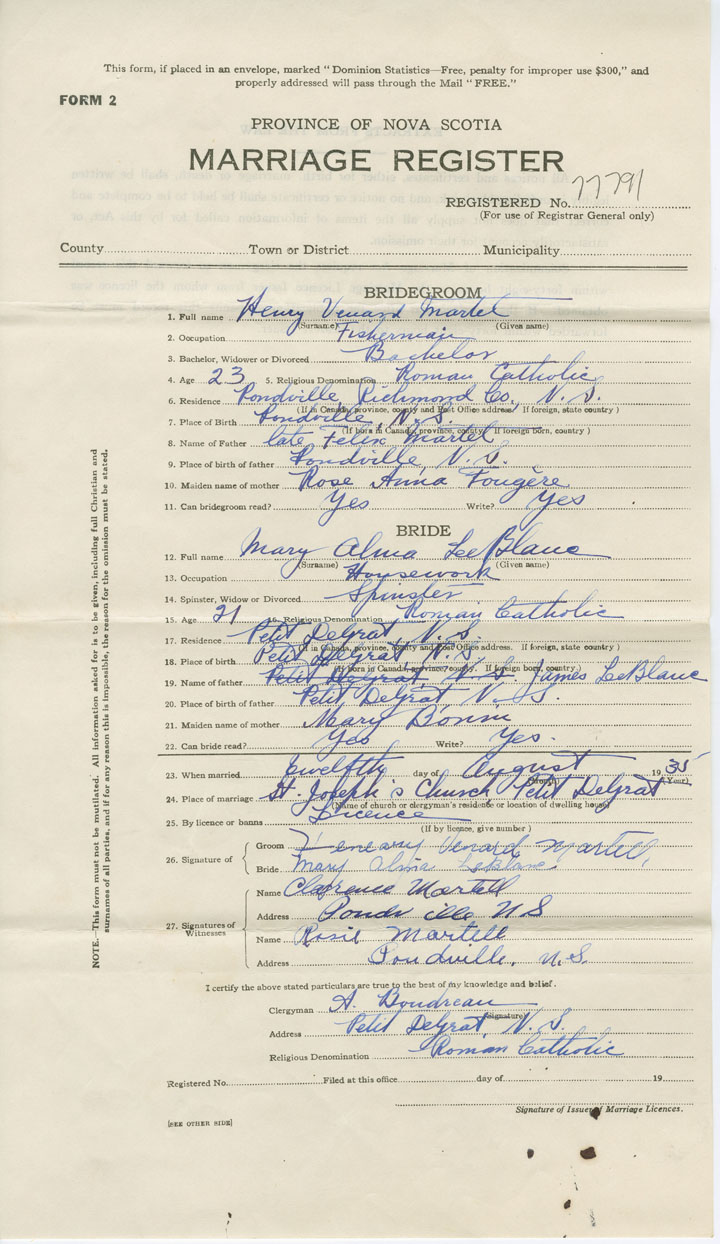 This form, if placed in an envelope, marked "Dominion Statistics—Free, penalty for improper use $300," and
properly addressed will pass through the Mail "FREE."
FORM 2
PROVINCE OF NOVA SCOTIA
MARRIAGE REGISTER
REGISTERED No. 77791
(For use of Registrar General only)
County Town or District Municipality
BRIDEGROOM
1. Full name Henry Venard Martel
(Surname) (Given name)
2. Occupation Fisherman
3. Bachelor, Widower or Divorced Bachelor
4. Age 23 5. Religious Denomination Roman Catholic
6. Residence Pondville, Richmond Co., N. S.
(If in Canada, province, county and Post Office address. If foreign, state country)
7. Place of Birth Pondville, N. S.
(If born in Canada, province, county. If foreign born, country)
8. Name of Father late Felix Martel
9. Place of birth of father Pondville, N. S.
10. Maiden name of mother Rose Anna Fougère
11. Can bridegroom read? Yes Write? Yes
BRIDE
12. Full name Mary Alma LeBlanc
(Surname) (Given name)
13. Occupation Housework
14. Spinster, Widow or Divorced Spinster
15. Age 21 16. Religious Denomination Roman Catholic
17. Residence Petit Degrat, N. S.
(If in Canada, province, county and Post Office address. If foreign, state country)
18. Place of birth Petit Degrat, N. S.
(If born in Canada, province, county. If foreign born, country.)
19. Name of father Petit Degrat, N. S. James LeBlanc
20. Place of birth of father Petit Degrat, N. S.
21. Maiden name of mother Mary Bonin
22. Can bride read? Yes Write? Yes.
23. When married twelfth day of August 1935
(Month) (Year)
24. Place of marriage St. Joseph's Church, Petit Degrat
(Name of church or clergyman's residence or location of dwelling house)
25. By licence or banns Licence
(If by licence, give number)
26. Signature of Groom Venard Martell,
Bride Mary Alma LeBlanc.
27. Signatures of Witnesses
Name Clarence Martell
Address Pondville N S
Name Rosie Martell
Address Pondville, N.S.
I certify the above stated particulars are true to the best of my knowledge and belief.
Clergyman A. Boudreau
(Signature)
Address Petit Degrat, N. S.
Religious Denomination Roman Catholic
Registered No. Filed at this office day of 19
Signature of Issuer of Marriage Licences.
[SEE OTHER SIDE]
NOTE.—This form must not be mutilated. All information asked for is to be given, including full Christian and
surnames of all parties, and if for any reason this is impossible, the reason for the omission must be stated.